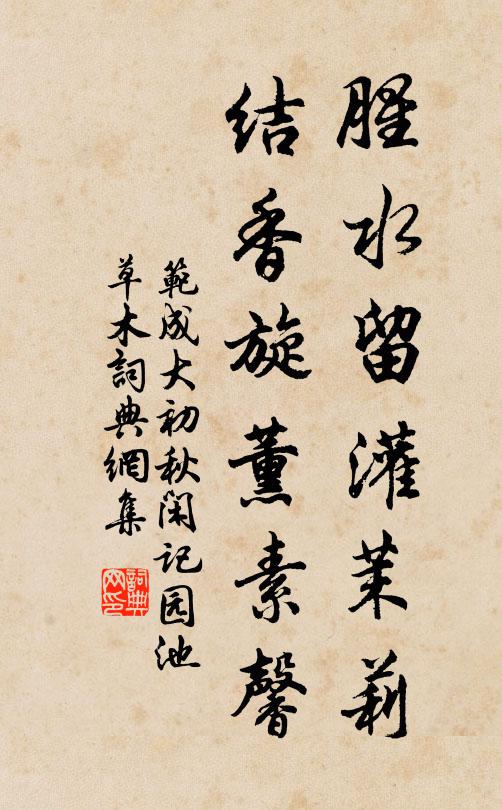 腥水留灌茉莉
结香旋薰素馨
範成大初秋闲记园池
草木詞典網集
詞典
网印